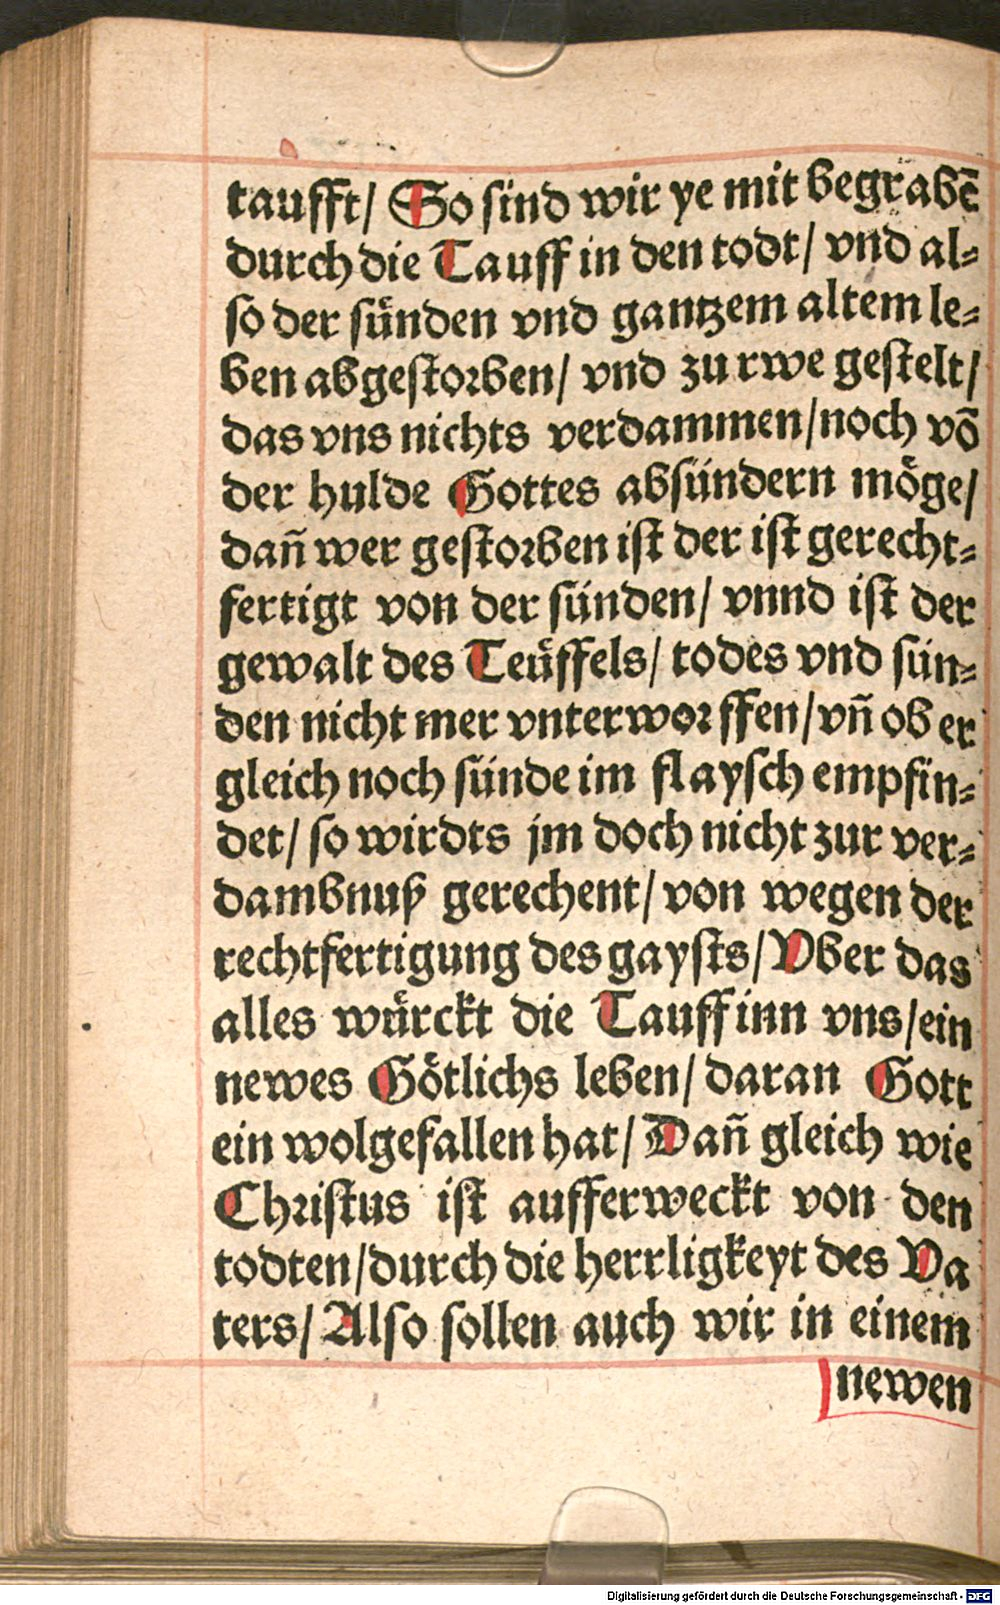 taufft/ So sind wir ye mit begrabē
durch die Tauff in den todt/ vnd al⸗
so der sünden vnd gantzem altem le⸗
ben abgestorben/ vnd zu rwe gestelt/
das vns nichts verdammen/noch võ
der hulde Gottes absündern möge/
dañ wer gestorben ist der ist gerecht⸗
fertigt von der sünden/ vnnd ist der
gewalt des Teüffels/ todes vnd sün⸗
den nicht mer vnterworffen/vñ ob er
gleich noch sünde im flaysch empfin⸗
det/ so wirdts jm doch nicht zur ver⸗
dambnuß gerechent/ von wegen der
rechtfertigung des gaysts/ Vber das
alles würckt die Tauff inn vns/ein
newes Götlichs leben/ daran Gott
ein wolgefallen hat/ Dañ gleich wie
Christus ist aufferweckt von den
todten/durch die herrligkeyt des Va
ters/ Also sollen auch wir in einem
newen
Digitalisierung gefördert durch die Deutsche Forschungsgemeinschaft - DFG